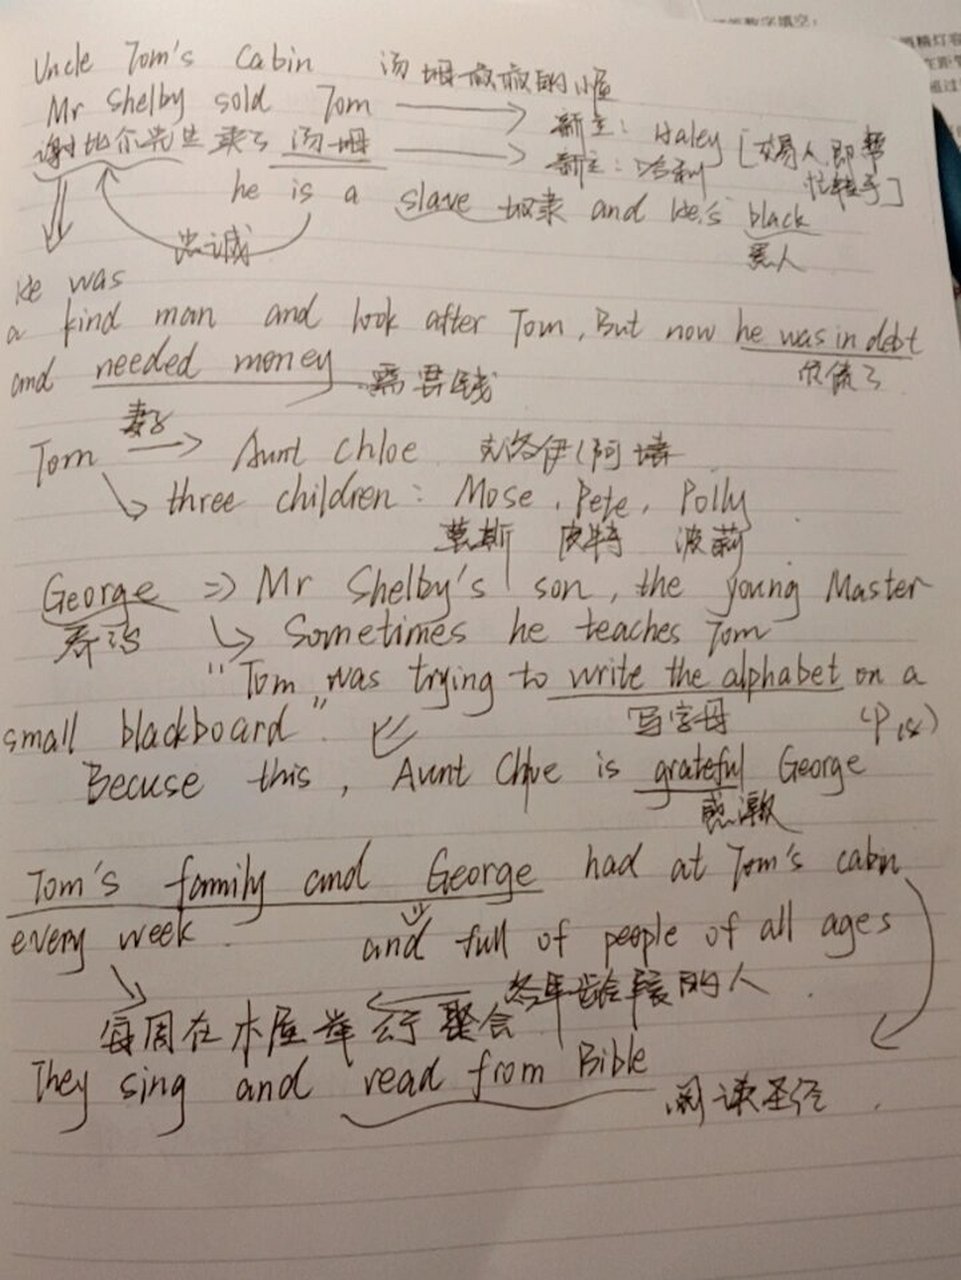 Uncle Tom's Cabin 汤姆叔叔的小屋
Mr Shelby sold Tom → 新主: Haley [交易人,即帮
谢比尔先生 卖了 汤姆 → 新主: 哈利 忙转手]
he is a slave 奴隶 and He's black
忠诚 黑人
He was
a kind man and look after Tom, But now he was in debt
欠债了
and needed money 需要钱
妻子
Tom → Aunt Chloe 克洛伊(阿
three children: Mose, Pete, Polly
莫斯 皮特 波莉
George ⇒ Mr Shelby's son, the young Master
乔治 Sometimes he teaches Tom
"Tom was trying to write the alphabet on a
写字母 (P
small blackboard"
Becuse this, Aunt Chloe is grateful George
感激
Tom's family and George had at Tom's cabin
every week
and full of people of all ages
各年龄段的人
每周在木屋举行聚会
They sing and read from Bible
阅读圣经